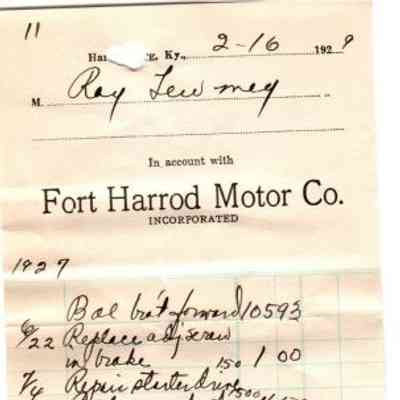 11
Har g, Ky., 2-16 1929
M. Ray
In account with
Fort Harrod Motor Co.
INCORPORATED
1927
Bal bra't forward 105 93
6/22 Replace adj screw
in brake 150 1 00
7/4 Repair starter drive